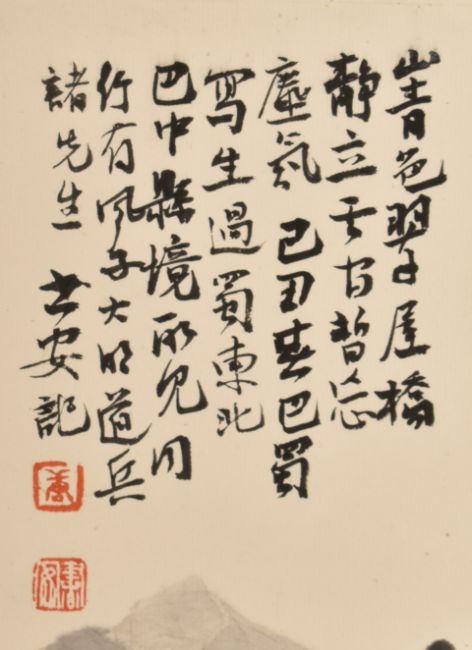 山青色翠屋橋
靜立其间暂忘
塵氣 己丑春巴蜀
寫生過蜀東北
巴中縣境所見同
行有風子大明道兵
諸先生 安記